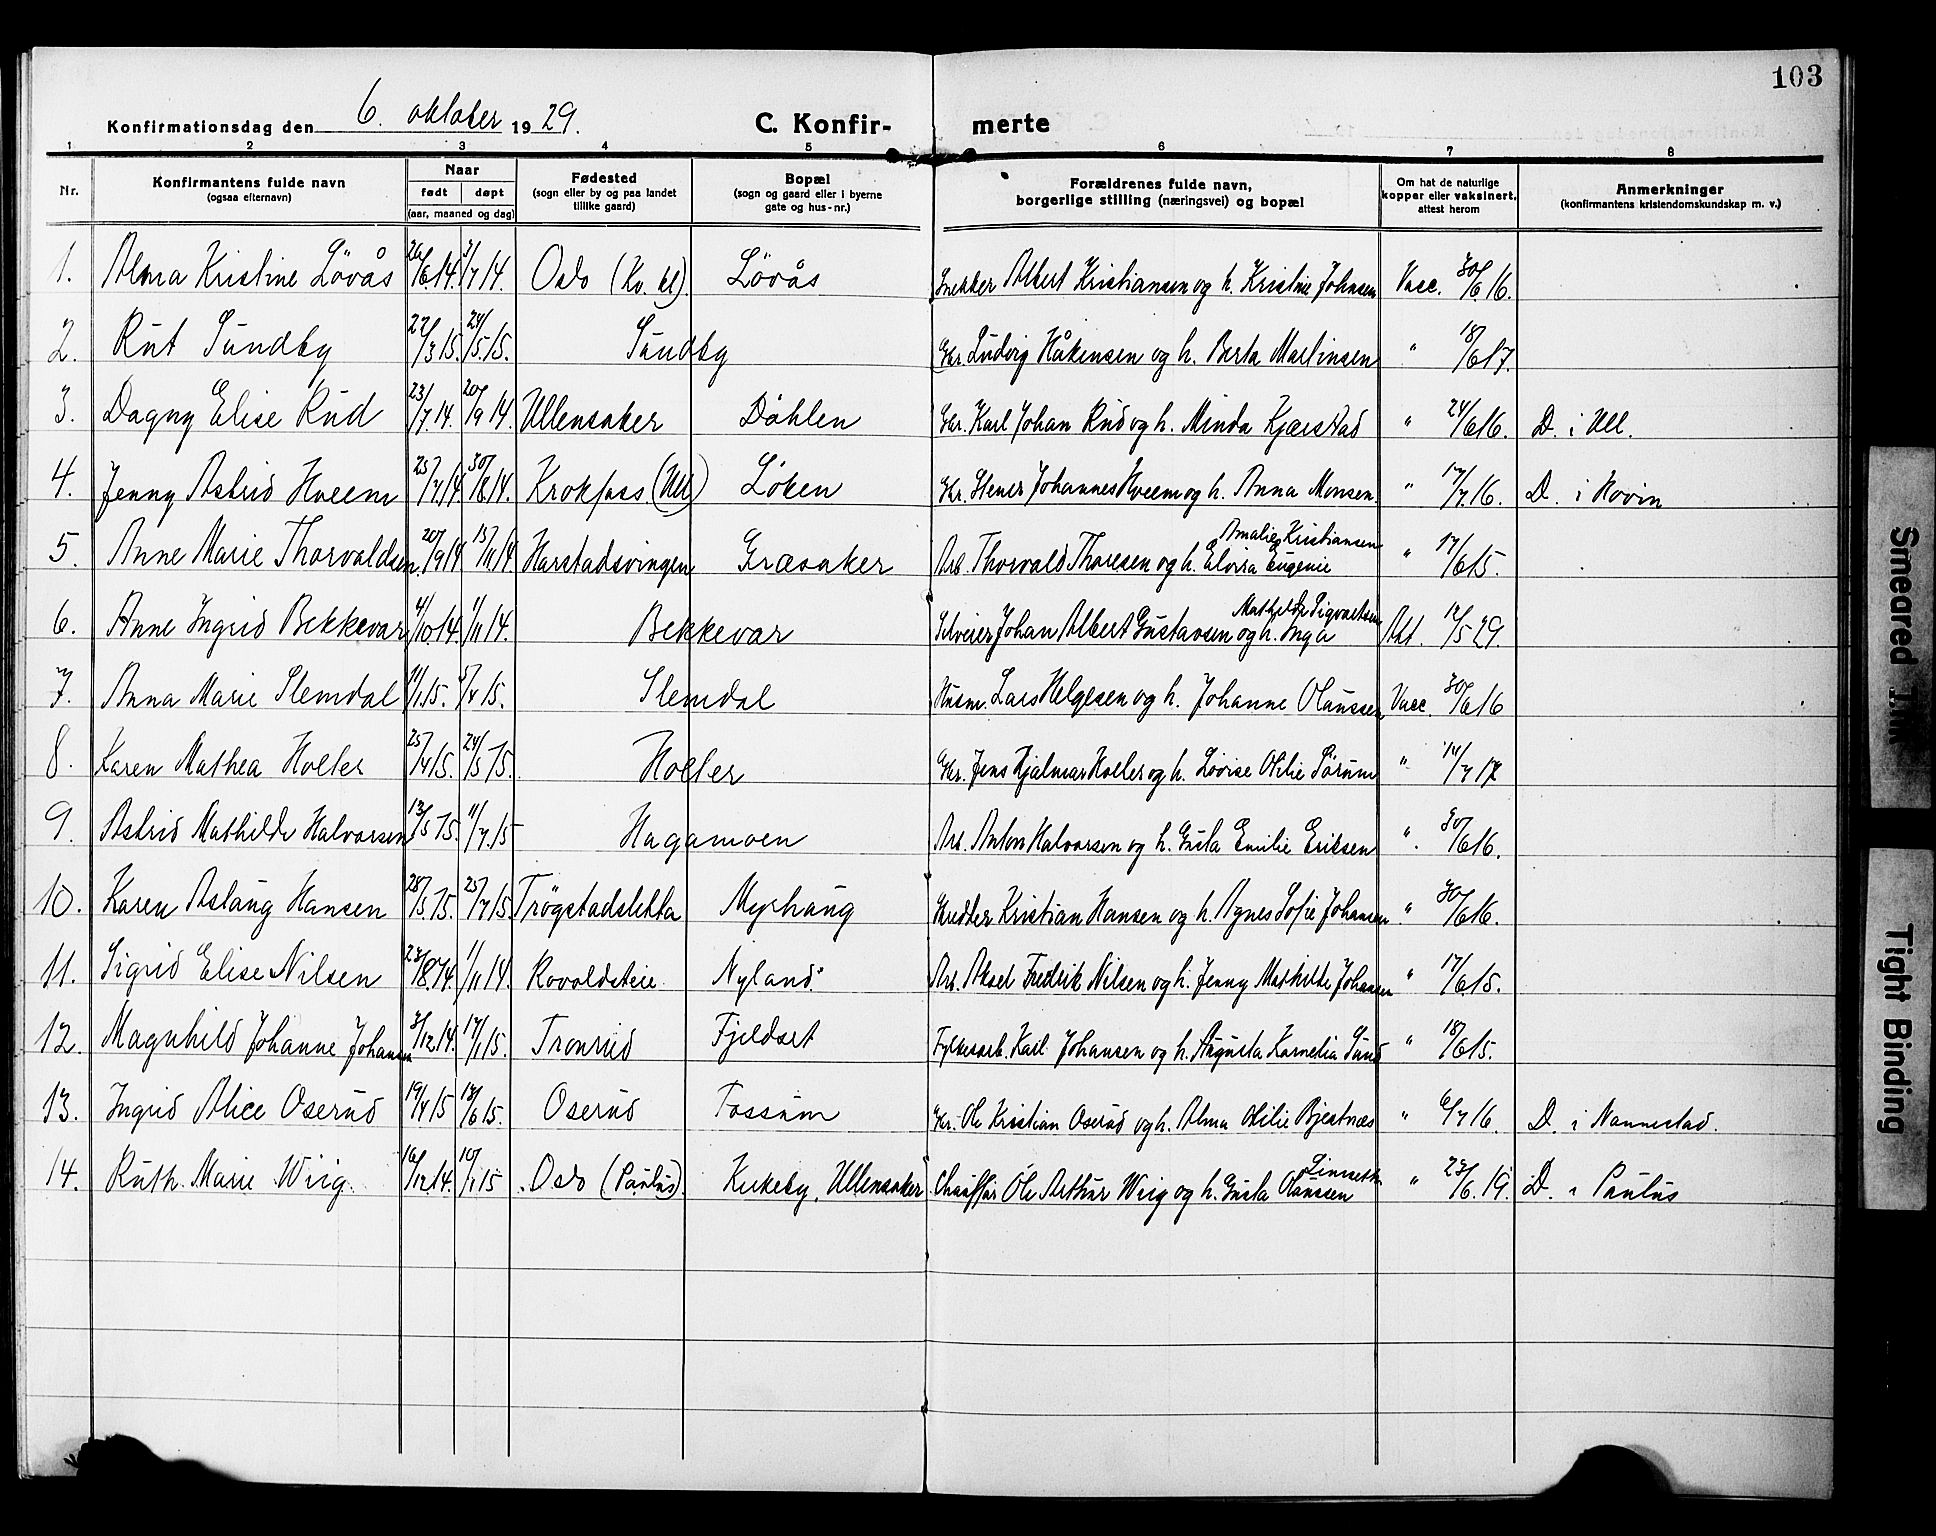 103
Konfirmationsdag den 6. oktober 1929. C. Konfirmerte
1 2 3 4 5 6 7 8
Nr. Konfirmantens fulde navn (ogsaa efternavn) Naar født døpt (aar, maaned og dag) Fødested (sogn eller by og paa landet tillike gaard) Bopæl (sogn og gaard eller i byerne gate og hus-nr.) Forældrenes fulde navn, borgerlige stilling (næringsvei) og bopæl Om hat de naturlige kopper eller vaksinert, attest herom Anmerkninger (konfirmantens kristendomskundskap m. v.)
1. Alma Kristine Lövås 26/6 14. 3/7 14. Oslo (Kv. kl). Lövås Snekker Albert Kristiansen og h. Kristine Johnsen Vacc. 30/6 16.
2. Rut Sundby 22/3 15. 24/5 15. Sundby Gbr. Ludvig Håkensen og h. Berta Martinsen " 18/6 17.
3. Dagny Elise Rud 23/7 14. 20/9 14. Ullensaker Döhlen Gbr. Karl Johan Rud og h. Minda Kjærstad " 24/6 16. D. i Ull.
4. Jenny Astrid Hveem 25/7 14. 30/8 14. Krokfoss (Ull) Löken Gbr. Stener Johannes Hveem og h. Anna Monsen. " 17/7 16. D. i Hovin
5. Anne Marie Thorvaldsen. 20/9 14 15/11 14. Harstadsvingen Græsaker Arb. Thorvald Thoresen og h. Elvira Eugenie Amalie Kristiansen " 17/6 15.
6. Anne Ingrid Bekkevar 4/10 14. 1/11 14. Bekkevar Selveier Johan Albert Gustavsen og h. Inga Mathilde Sigvartsen Att. 12/5 29.
7. Anna Marie Slemdal 11/1 15. 5/4 15. Slemdal Husm. Lars Helgesen og h. Johanne Olaussen Vacc. 30/6 16
8. Karen Mathea Holter 25/4 15. 24/5 15. Holter Gbr. Jens Hjalmar Holter og h. Lovise Otilie Sörum " 14/7 17
9. Astrid Mathilde Halvorsen 13/5 15. 11/7 15 Hagamoen Arb. Anton Halvorsen og h. Gusta Emilie Eriksen " 30/6 16.
10. Karen Aslaug Hansen 28/5 15. 25/7 15. Trögstadsletta Myrhaug Skredder Kristian Hansen og h. Agnes Sofie Johansen " 30/6 16.
11. Sigrid Elise Nilsen 23/8 14. 1/11 14. Rovoldsteie Nyland Arb. Aksel Fredrik Nilsen og h. Jenny Mathilde Johansen " 17/6 15.
12. Magnhild Johanne Johansen 3/12 14. 17/1 15. Tronrud Fjeldset Fylkesarb. Karl Johansen og h. Augusta Kornelia Sund " 18/6 15.
13. Ingrid Alice Oserud 19/4 15 13/6 15. Oserud Fossum Gbr. Ole Kristian Oserud og h. Alma Otilie Bjertnæs " 6/7 16. D. i Nannestad.
14. Ruth Marie Wiig. 16/12 14. 10/1 15 Oslo (Paulus). Kirkeby, Ullensaker Chauffør Ole Arthur Wiig og h. Gusta Olaussen Linneseth " 23/6 19. D. i Paulus
Smeared Ink
Tight Binding